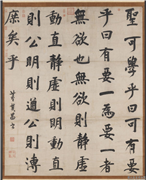 聖可學乎曰可有要
乎曰有一為要一者
無欲也無欲則靜虛
動直靜虛則明動直
則公明則通公則溥
庶矣乎